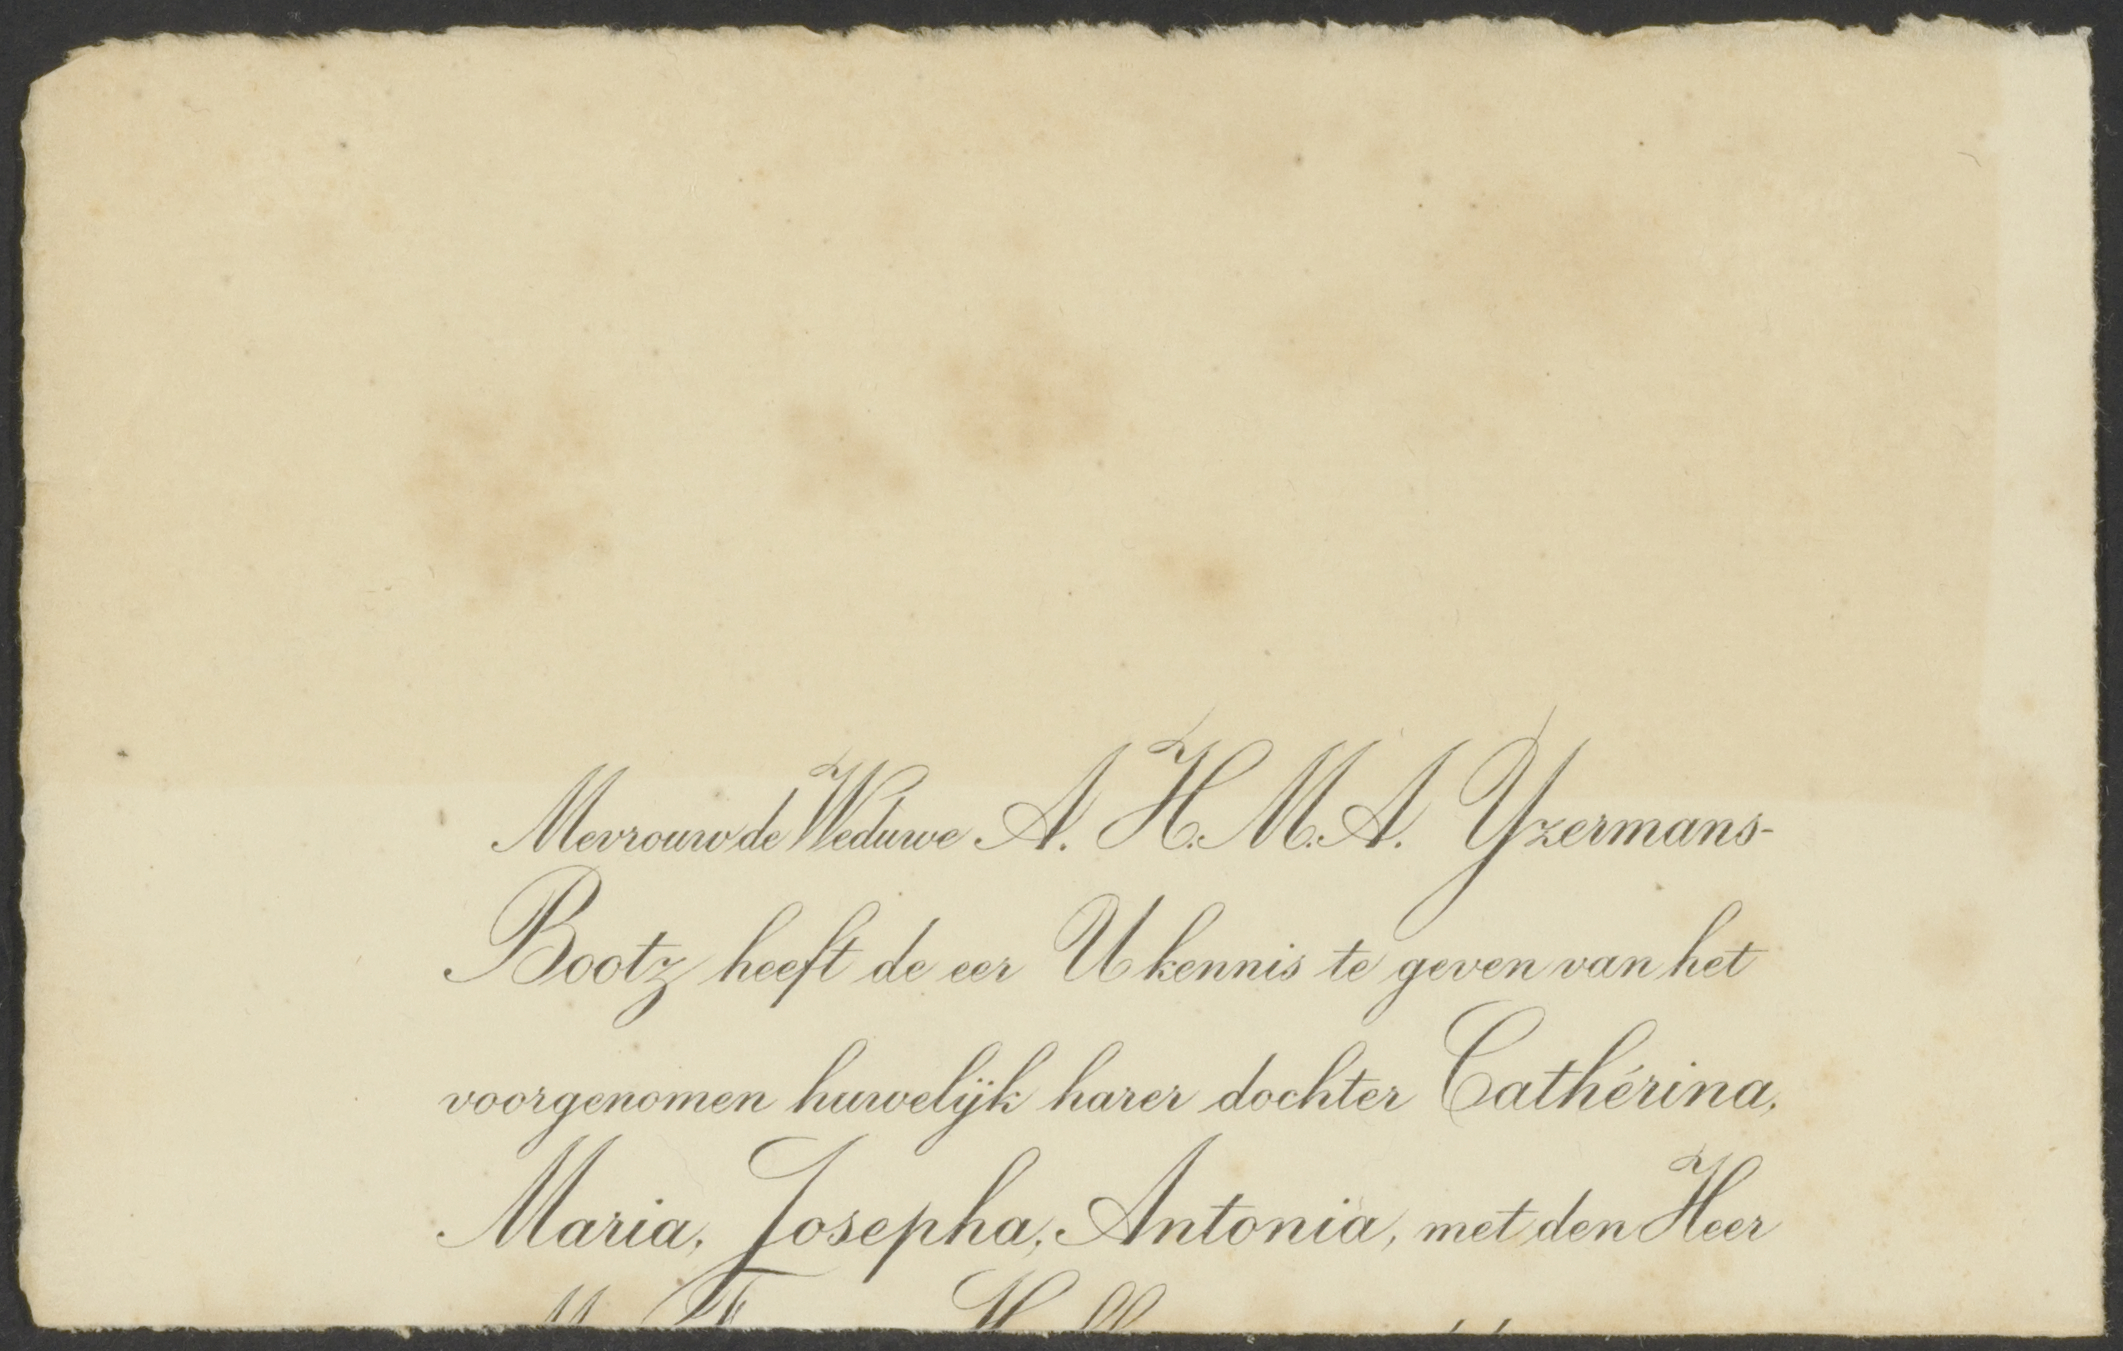 Mevrouw de Weduwe A. H. M. A. Yzermans-
Bootz heeft de eer U kennis te geven van het
voorgenomen huwelijk harer dochter Cathérina,
Maria, Josepha, Antonia, met den Heer